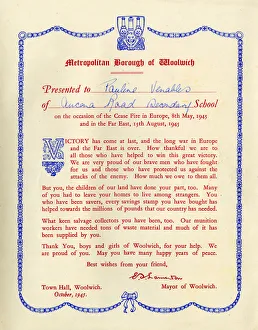 Metropolitan Borough of Woolwich
Presented to Pauline Venables
of Ancona Road Secondary School
on the occasion of the Cease Fire in Europe, 8th May, 1945
and in the Far East, 15th August, 1945
VICTORY has come at last, and the long war in Europe
and the Far East is over. How thankful we are to all
those who have helped to win this great victory.
We are very proud of our brave men who have fought
for us and those who have protected us against the
attacks of the enemy. How much we owe to them all.
But you, the children of our land have done your part, too. Many
of you had to leave your homes to live among strangers. You
who have been savers, every savings stamp you have bought has
helped towards the millions of pounds that our country has needed.
What keen salvage collectors you have been, too. Our munition
workers have needed tons of waste material and much of it has
been supplied by your efforts.
Thank You, boys and girls of Woolwich, for your help. We are
proud of you. May you have many happy years of peace.
Best wishes from your friend,
Town Hall, Woolwich.
Mayor of Woolwich.
October, 1945.